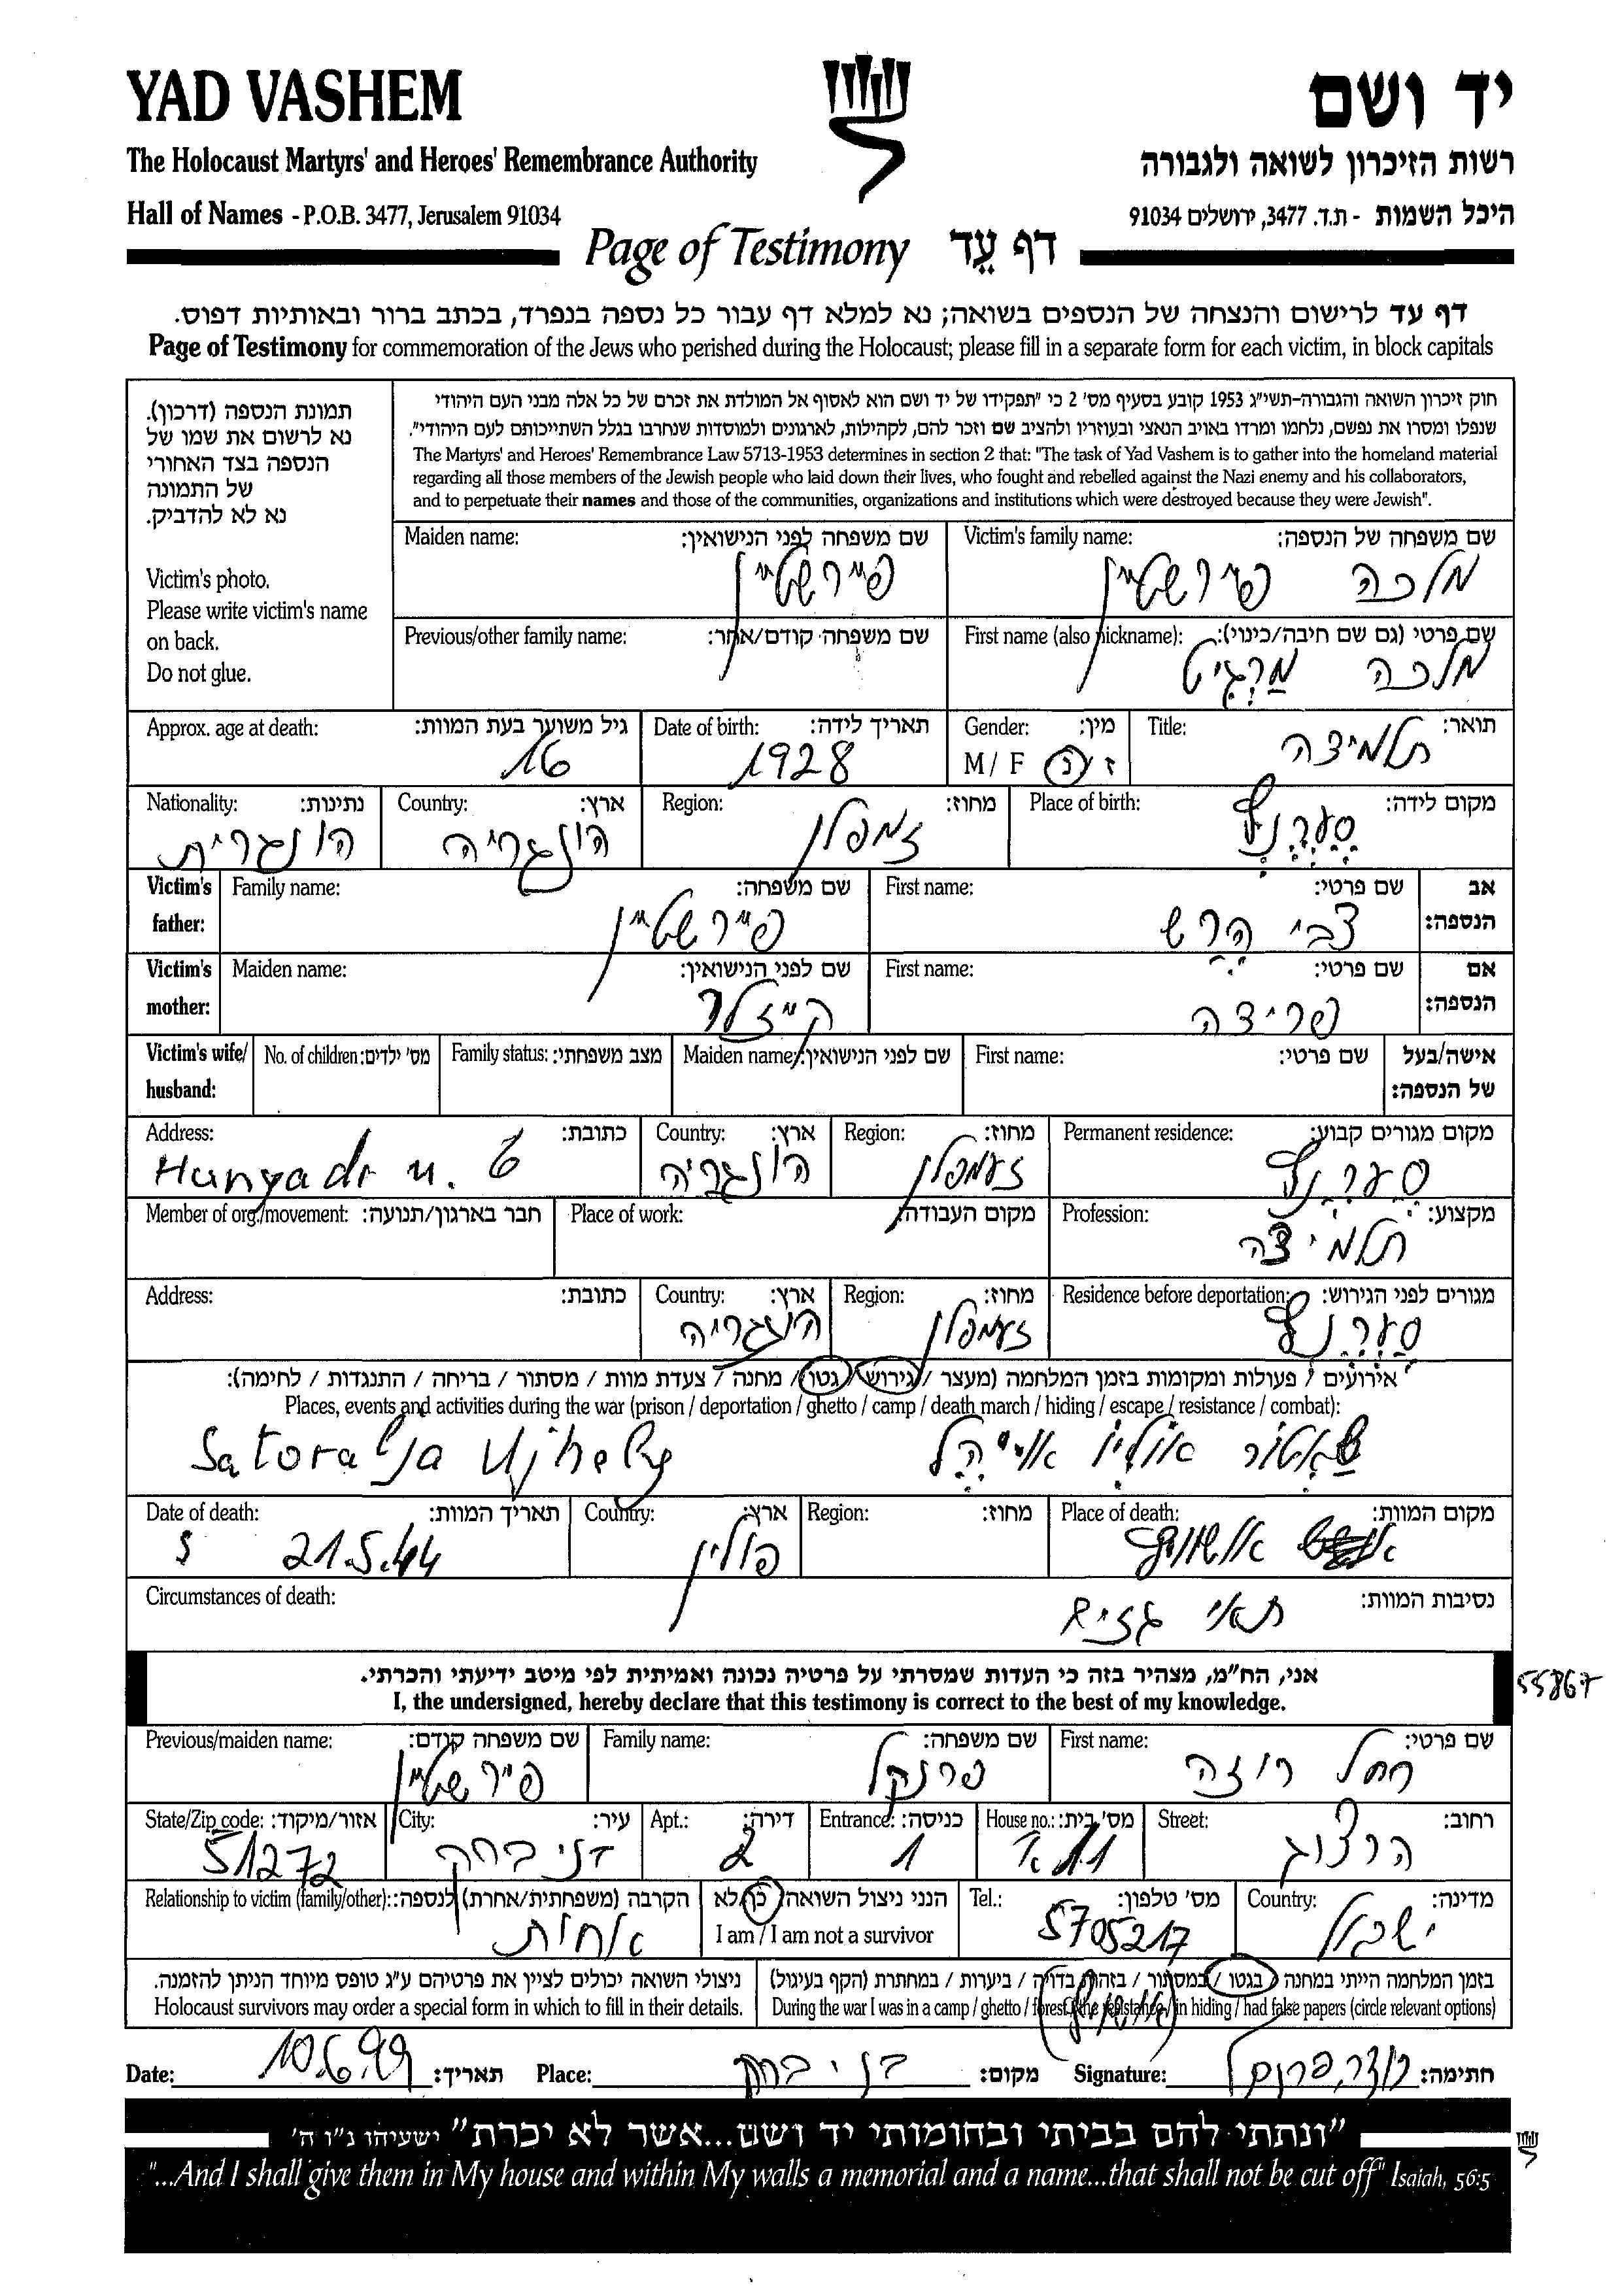 YAD VASHEM
יד ושם
The Holocaust Martyrs' and Heroes' Remembrance Authority
רשות הזיכרון לשואה ולגבורה
Hall of Names - P.O.B. 3477, Jerusalem 91034
היכל השמות - ת.ד. 3477, ירושלים 91034
Page of Testimony דף עֵד
דף עד לרישום והנצחה של הנספים בשואה; נא למלא דף עבור כל נספה בנפרד, בכתב ברור ובאותיות דפוס.
Page of Testimony for commemoration of the Jews who perished during the Holocaust; please fill in a separate form for each victim, in block capitals
תמונת הנספה (דרכון).
נא לרשום את שמו של
הנספה בצד האחורי
של התמונה
נא לא להדביק.
Victim's photo.
Please write victim's name
on back.
Do not glue.
חוק זיכרון השואה והגבורה-תשי"ג 1953 קובע בסעיף מס' 2 כי "תפקידו של יד ושם הוא לאסוף אל המולדת את זכרם של כל אלה מבני העם היהודי
שנפלו ומסרו את נפשם, נלחמו ומרדו באויב הנאצי ובעוזריו ולהציב שם וזכר להם, לקהילות, לארגונים ולמוסדות שנחרבו בגלל השתייכותם לעם היהודי".
The Martyrs' and Heroes' Remembrance Law 5713-1953 determines in section 2 that: "The task of Yad Vashem is to gather into the homeland material
regarding all those members of the Jewish people who laid down their lives, who fought and rebelled against the Nazi enemy and his collaborators,
and to perpetuate their names and those of the communities, organizations and institutions which were destroyed because they were Jewish".
Victim's family name: שם משפחה של הנספה:
מלכה פיירשטיין
Maiden name: שם משפחה לפני הנישואין:
פיירשטיין
First name (also nickname): שם פרטי (גם שם חיבה/כינוי):
מלכה מַרְגִיט
Previous/other family name: שם משפחה קודם/אחר:
Title: תואר:
תלמידה
Gender: מין:
M / F ז / נ
Date of birth: תאריך לידה:
1928
Approx. age at death: גיל משוער בעת המוות:
16
Place of birth: מקום לידה:
סערנץ
Region: מחוז:
זמפלן
Country: ארץ:
הונגריה
Nationality: נתינות:
הונגרית
Victim's father: אב הנספה:
First name: שם פרטי:
צבי הרש
Family name: שם משפחה:
פיירשטיין
Victim's mother: אם הנספה:
First name: שם פרטי:
פרידה
Maiden name: שם לפני הנישואין:
קיזלר
Victim's wife/ husband: אישה/בעל של הנספה:
First name: שם פרטי:
Maiden name: שם לפני הנישואין:
Family status: מצב משפחתי:
No. of children: מס' ילדים:
Permanent residence: מקום מגורים קבוע:
סערנץ
Region: מחוז:
זעמפלן
Country: ארץ:
הונגריה
Address: כתובת:
Hunyadi u. 6
Profession: מקצוע:
תלמידה
Place of work: מקום העבודה:
Member of org./movement: חבר בארגון/תנועה:
Residence before deportation: מגורים לפני הגירוש:
סערנץ
Region: מחוז:
זעמפלן
Country: ארץ:
הונגריה
Address: כתובת:
אירועים / פעולות ומקומות בזמן המלחמה (מעצר / גירוש / גטו / מחנה / צעדת מוות / מסתור / בריחה / התנגדות / לחימה):
Places, events and activities during the war (prison / deportation / ghetto / camp / death march / hiding / escape / resistance / combat):
Satoralja Ujhely
Place of death: מקום המוות:
אושוויץ
Region: מחוז:
Country: ארץ:
פולין
Date of death: תאריך המוות:
21.5.44
Circumstances of death: נסיבות המוות:
תאי גזים
אני, הח"מ, מצהיר בזה כי העדות שמסרתי על פרטיה נכונה ואמיתית לפי מיטב ידיעתי והכרתי.
I, the undersigned, hereby declare that this testimony is correct to the best of my knowledge.
55867
First name: שם פרטי:
רחל רוזה
Family name: שם משפחה:
פרנקל
Previous/maiden name: שם משפחה קודם:
פיירשטיין
Street: רחוב:
הרצוג
House no.: מס' בית:
11
Entrance: כניסה:
1
Apt.: דירה:
2
City: עיר:
בני ברק
State/Zip code: אזור/מיקוד:
51272
Country: מדינה:
ישראל
Tel.: מס' טלפון:
5705217
הנני ניצול השואה: כן/לא
I am / I am not a survivor
Relationship to victim (family/other): הקרבה (משפחתית/אחרת) לנספה:
אחות
בזמן המלחמה הייתי במחנה / בגטו / במסתור / בזהות בדויה / ביערות / במחתרת (הקף בעיגול)
During the war I was in a camp / ghetto / forest / the resistance / in hiding / had false papers (circle relevant options)
אושוויץ
ניצולי השואה יכולים לציין את פרטיהם ע"ג טופס מיוחד הניתן להזמנה.
Holocaust survivors may order a special form in which to fill in their details.
Date: 10.6.99 תאריך: Place: בני ברק מקום: Signature: רוזה פרנקל חתימה:
"ונתתי להם בביתי ובחומותי יד ושם...אשר לא יכרת" ישעיהו נ"ו ה'
"...And I shall give them in My house and within My walls a memorial and a name...that shall not be cut off" Isaiah, 56:5